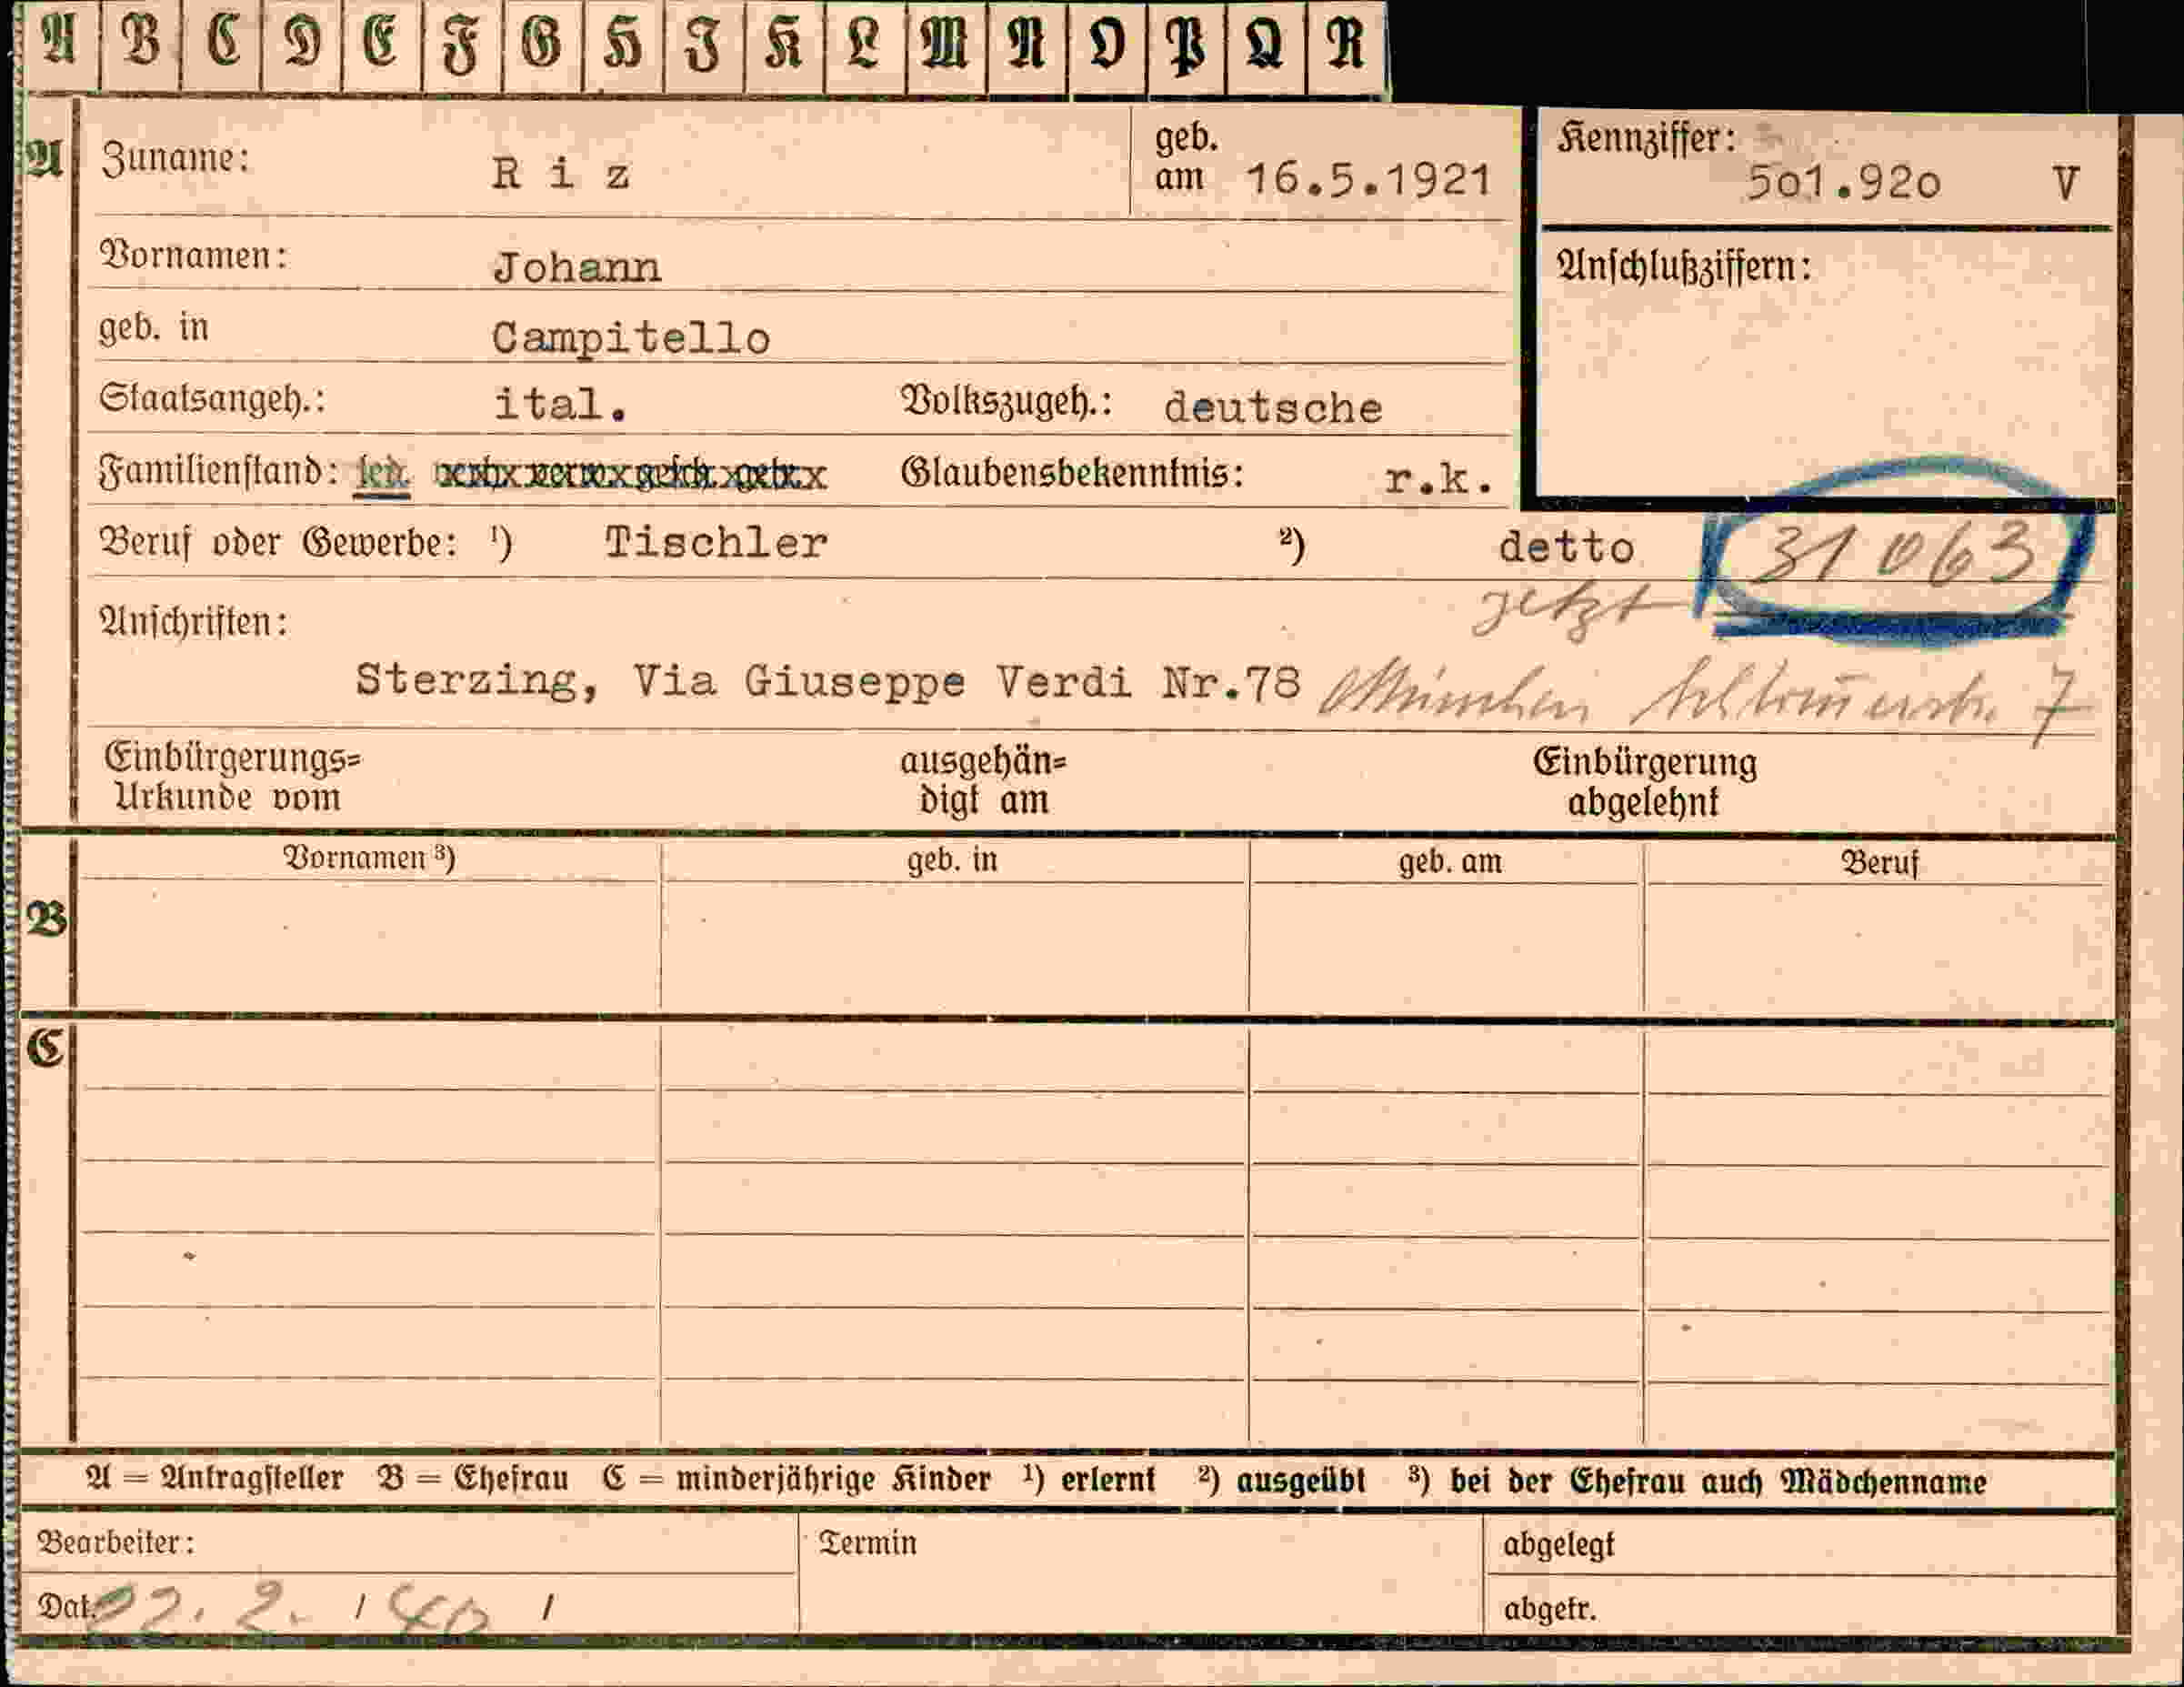 A B C D E F G H J K L M N O P Q R
A Zuname: R i z geb. am 16.5.1921 Kennziffer: 5o1.92o V
Vornamen: Johann Anschlußziffern:
geb. in Campitello
Staatsangeh.: ital. Volkszugeh.: deutsche
Familienstand: led. Glaubensbekenntnis: r.k.
Beruf oder Gewerbe: ¹) Tischler ²) detto 31 063
Anschriften: jetzt
Sterzing, Via Giuseppe Verdi Nr.78 München 7
Einbürgerungs= ausgehän= Einbürgerung
Urkunde vom digt am abgelehnt
Vornamen ³) geb. in geb. am Beruf
B
C
A = Antragsteller B = Ehefrau C = minderjährige Kinder ¹) erlernt ²) ausgeübt ³) bei der Ehefrau auch Mädchenname
Bearbeiter: Termin abgelegt
Dat. 22. 2. / 40 / abgetr.